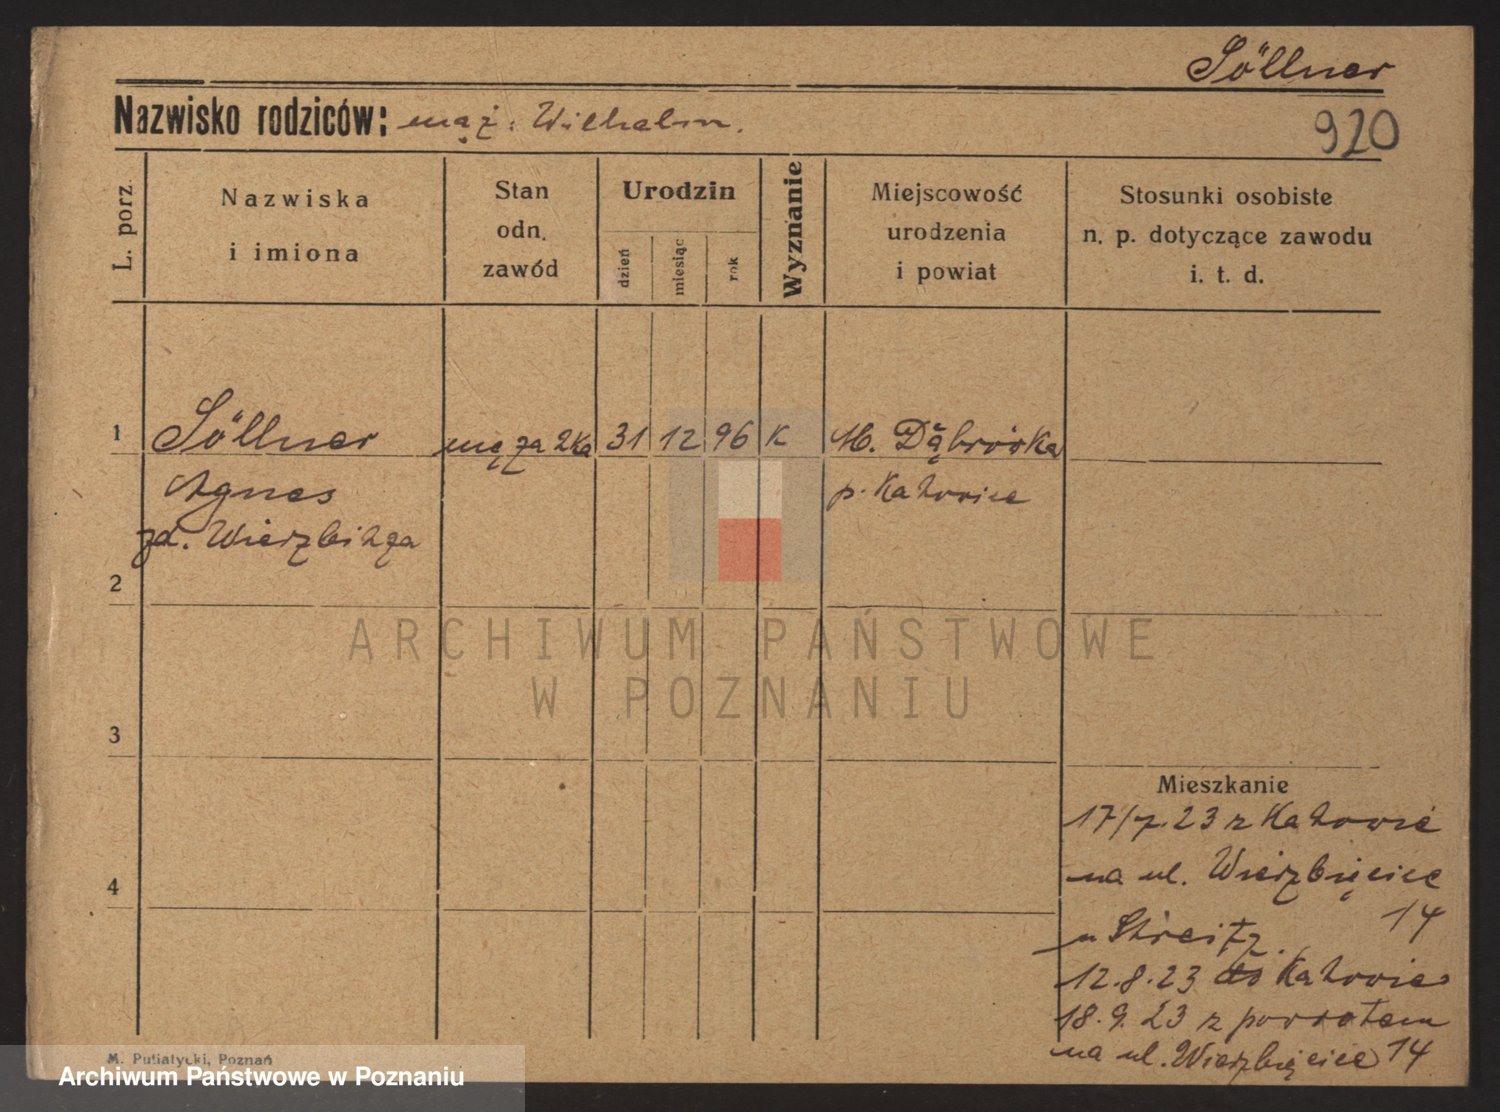 Söllner
Nazwisko rodziców: mąż. Wilhelm.
920
L. porz.
Nazwiska
i imiona
Stan
odn.
zawód
Urodzin
dzień
miesiąc
rok
Wyznanie
Miejscowość
urodzenia
i powiat
Stosunki osobiste
n. p. dotyczące zawodu
i. t. d.
1 Söllner mężatka 31 12 96 K M. Dąbrówka
Agnes p. Katowice
zd.
2
ARCHIWUM PAŃSTWOWE
W POZNANIU
3
Mieszkanie
17/7.23 z Katowic
na ul. Wierzbięcice
14
u Streitz.
12.8.23 do Katowic
18.9.23 z powrotem
na ul. Wierzbięcice 14
4
M. Putiatycki, Poznań
Archiwum Państwowe w Poznaniu